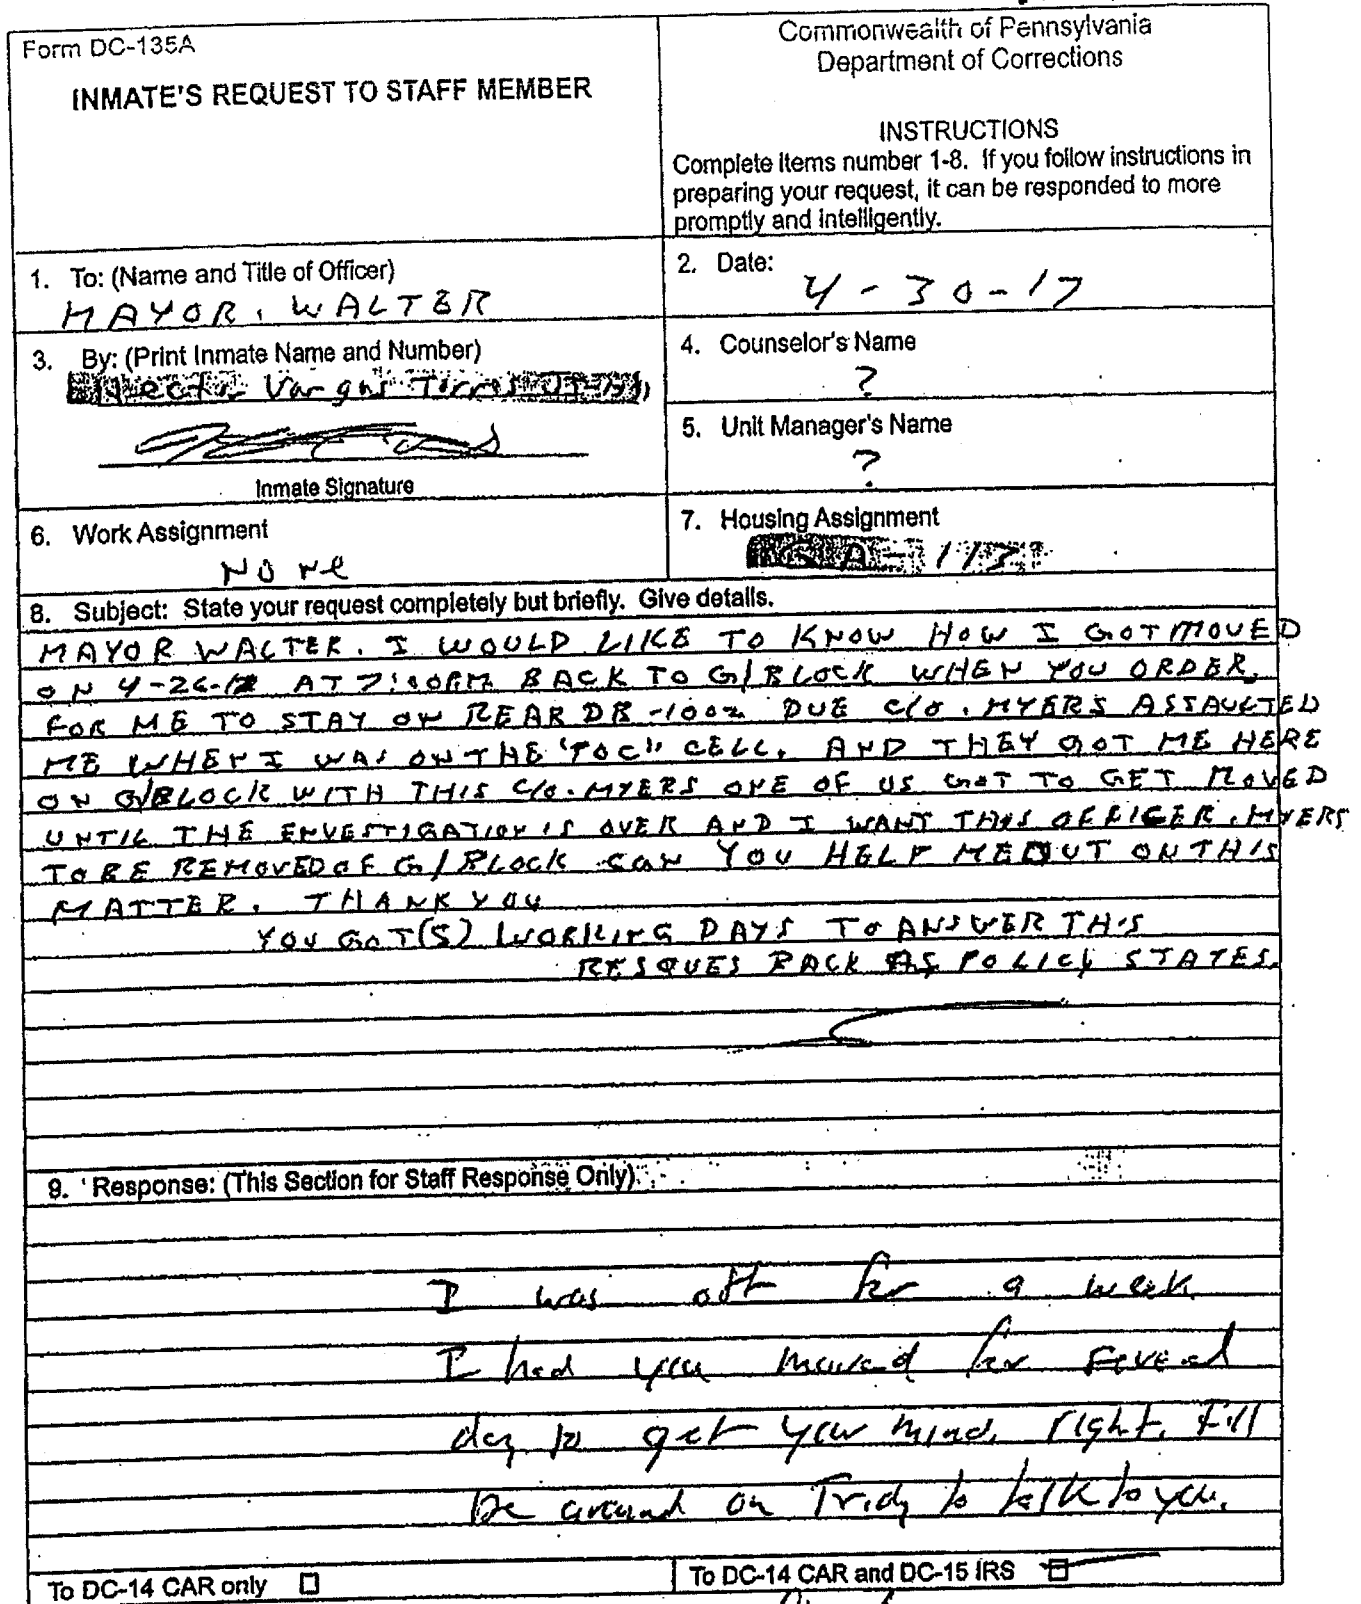 Form DC-135A
INMATE'S REQUEST TO STAFF MEMBER
Commonwealth of Pennsylvania
Department of Corrections
INSTRUCTIONS
Complete items number 1-8. If you follow instructions in
preparing your request, it can be responded to more
promptly and intelligently.
1. To: (Name and Title of Officer)
MAYOR. WALTER
2. Date:
4-30-17
3. By: (Print Inmate Name and Number)
Hector Vargas Torres
Inmate Signature
4. Counselor's Name
?
5. Unit Manager's Name
?
6. Work Assignment
None
7. Housing Assignment
GA-117
8. Subject: State your request completely but briefly. Give details.
MAYOR WALTER. I WOULD LIKE TO KNOW HOW I GOT MOVED
ON 4-26-17 AT 7:00PM BACK TO G/BLOCK WHEN YOU ORDER,
FOR ME TO STAY ON REAR DB-1002 DUE C/O. MYERS ASSAULTED
ME WHEN I WAS ON THE "POC" CELL. AND THEY GOT ME HERE
ON G/BLOCK WITH THIS C/O. MYERS ONE OF US GOT TO GET MOVED
UNTIL THE ENVESTIGATION IS OVER AND I WANT THIS OFFICER. MYERS
TO BE REMOVED OF G/BLOCK CAN YOU HELP ME OUT ON THIS
MATTER. THANK YOU
YOU GOT (5) WORKING DAYS TO ANSWER THIS
RESQUES BACK AS POLICY STATES.
9. Response: (This Section for Staff Response Only)
I was off for a week.
I had you moved for several
day to get your mind right. I'll
be around on Friday to talk to you.
To DC-14 CAR only
To DC-14 CAR and DC-15 IRS